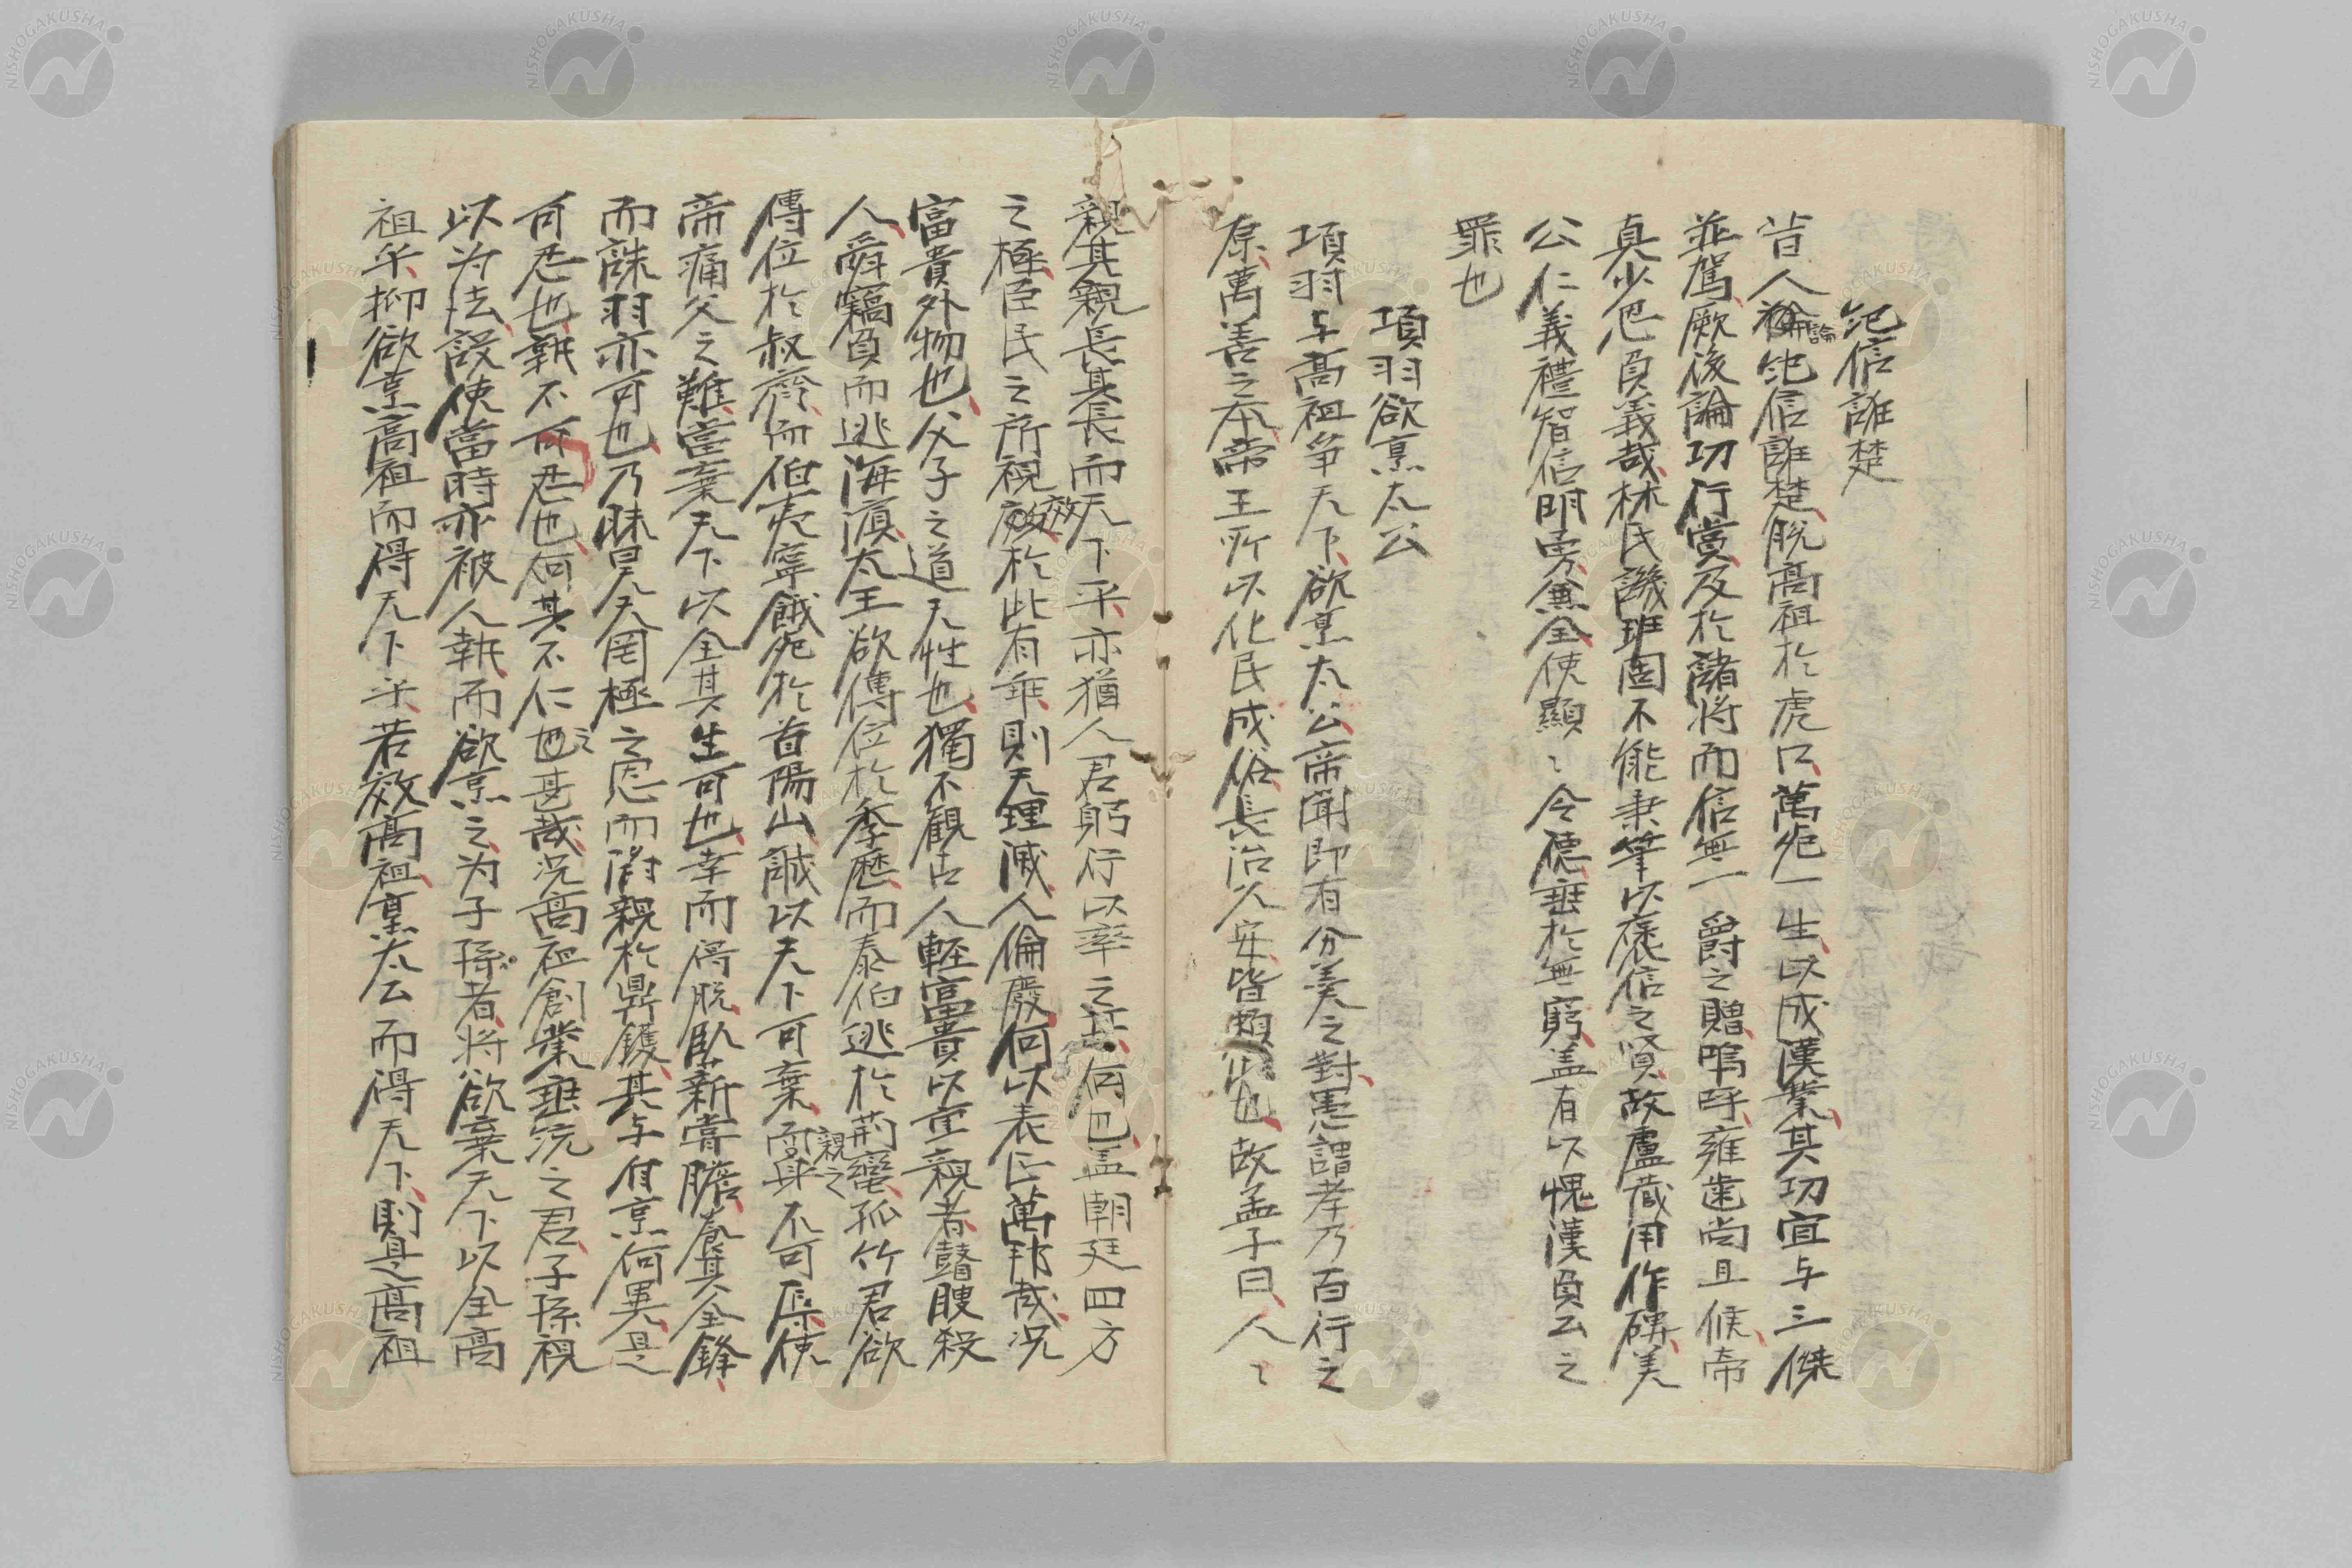 紀信誑楚
昔人論紀信誑楚脱高祖於虎口萬死一生以成漢業其功宜与三傑
並駕厥後論功行賞及於諸将而信無一爵之贈嗚呼雍歯尚且候帝
真少恩負義哉林氏譏班固不能秉筆以褒信之賢故盧蔵用作碑美
公仁義禮智信明勇兼全使顯〻令德垂於無窮盖有以愧漢負公之
罪也
項羽欲烹太公
項羽与髙祖争天下欲烹太公帝聞即有分羙之對愚謂孝乃百行之
原萬善之本帝王所以化民成俗長治久安皆頼此也故孟子曰人〻
親其親長其長而天下平亦猶人君躬行以率之其何也盖朝廷四方
之極臣民之所視效於此有乖則天理滅人倫廢何以表正萬邦哉况
富貴外物也父子之道天性也獨不觀古人輕富貴以重親者瞽瞍殺
人舜竊負而逃海濵太王欲傳位於季歷而泰伯逃於荊蠻孤竹君欲
傳位於叔齊而伯夷寧餓死於首陽山誠以天下可棄而親之身不可辱使
帝痛父之難當棄天下以全其生可也幸而得脱臥薪嘗膽養其全鋒
而誅羽亦可也乃昧昊天罔極之恩而附親於鼎鑊其与自烹何異是
可忍也孰不可忍也何其不仁之甚哉况髙祖創業垂統之君子孫視
以为法設使當時亦被人執而欲烹之为子孫者将欲棄天下以全高
祖乎抑欲烹高祖而得天下乎若效髙祖烹太公而得天下則是髙祖